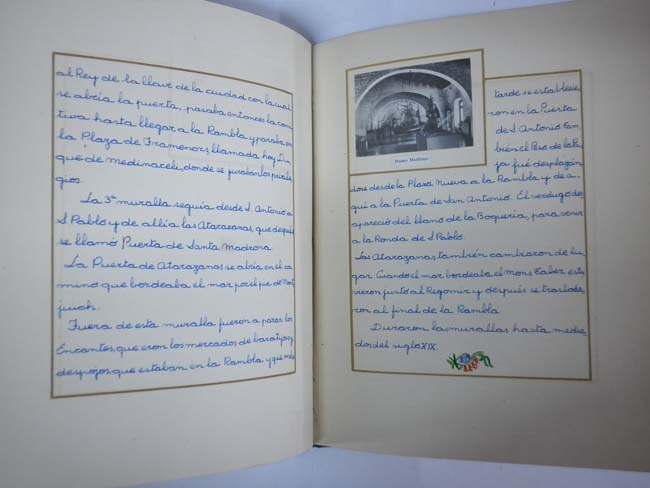 al Rey de la llave de la ciudad con la cual
se abría la puerta, pasaba entonces la comi
tiva hasta llegar a la Rambla y paraba en
la Plaza de Framenors, llamada hoy Du
que de medinaceli, donde se juraban los privile
gios.
La 3ª muralla seguía desde S. Antonio a
S. Pablo y de allí a las Atarazanas, que después
se llamó Puerta de Santa Madrona.
La Puerta de Atarazanas se abría en el ca
mino que bordeaba el mar por el pie de Mont
juich.
Fuera de esta muralla fueron a parar los
Encantes, que eran los mercados de baratijas y
despojos que estaban en la Rambla y que más
tarde se estable
ron en la Puerta
de S. Antonio. Tam
bién el Peso de la Pa
ja fué desplazán
Museo Marítimo
dose desde la Plaza Nueva a la Rambla y de a
qui a la Puerta de San Antonio. El verdugo des
apareció del llano de la Boquería, para venir
a la Ronda de S. Pablo.
Las Atarazanas también cambiaron de lu
gar. Cuando el mar bordeaba el mons Taber estu
vieron junto al Regomir y después se traslada
ron al final de la Rambla.
Duraron las murallas hasta media
dos del siglo XIX.